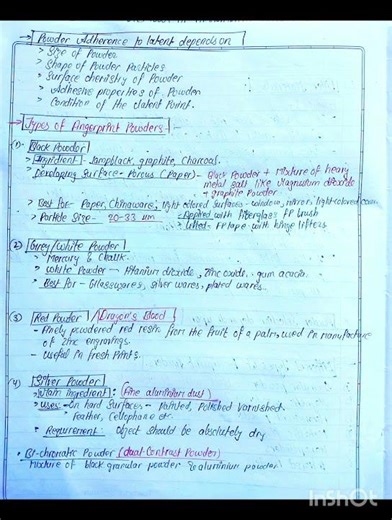 → Powder Adherence to latent depends on
> Size of Powder
> Shape of Powder Particles
> Surface chemistry of Powder
> Adhesive properties of Powder
> Condition of the latent Print.
→ Types of Fingerprint Powders -
(1) Black Powder
> Ingredient - lampblack, graphite, charcoal.
> Developing Surface - Porous (Paper) - Black Powder + Mixture of heavy
metal salt like Magnesium dioxide
+ graphite Powder
> Best for - Paper, Chinaware, light colored Surfaces - window, mirror, light colored
> Particle Size - 20-33 μm
- Applied with fiberglass FP brush
- Lifted - FP tape with hinge lifters
(2) Grey/White Powder
> Mercury & Chalk.
> White Powder - Titanium dioxide, Zinc oxide, gum acacia
> Best for - Glasswares, silver wares, plated wares.
(3) Red Powder / Dragon's Blood
- finely powdered red resin from the fruit of a palm, used in manufacture
of Zinc engravings.
- useful in fresh Prints.
(4) Silver Powder
> Main Ingredient : (Fine aluminium dust)
> uses - On hard Surfaces - Painted, Polished Varnished.
leather, Cellophane etc.
> Requirement - Object should be absolutely dry
• Bi-chromatic Powder (dual-Contrast Powder)
Mixture of black granular powder & aluminium powder
InShot